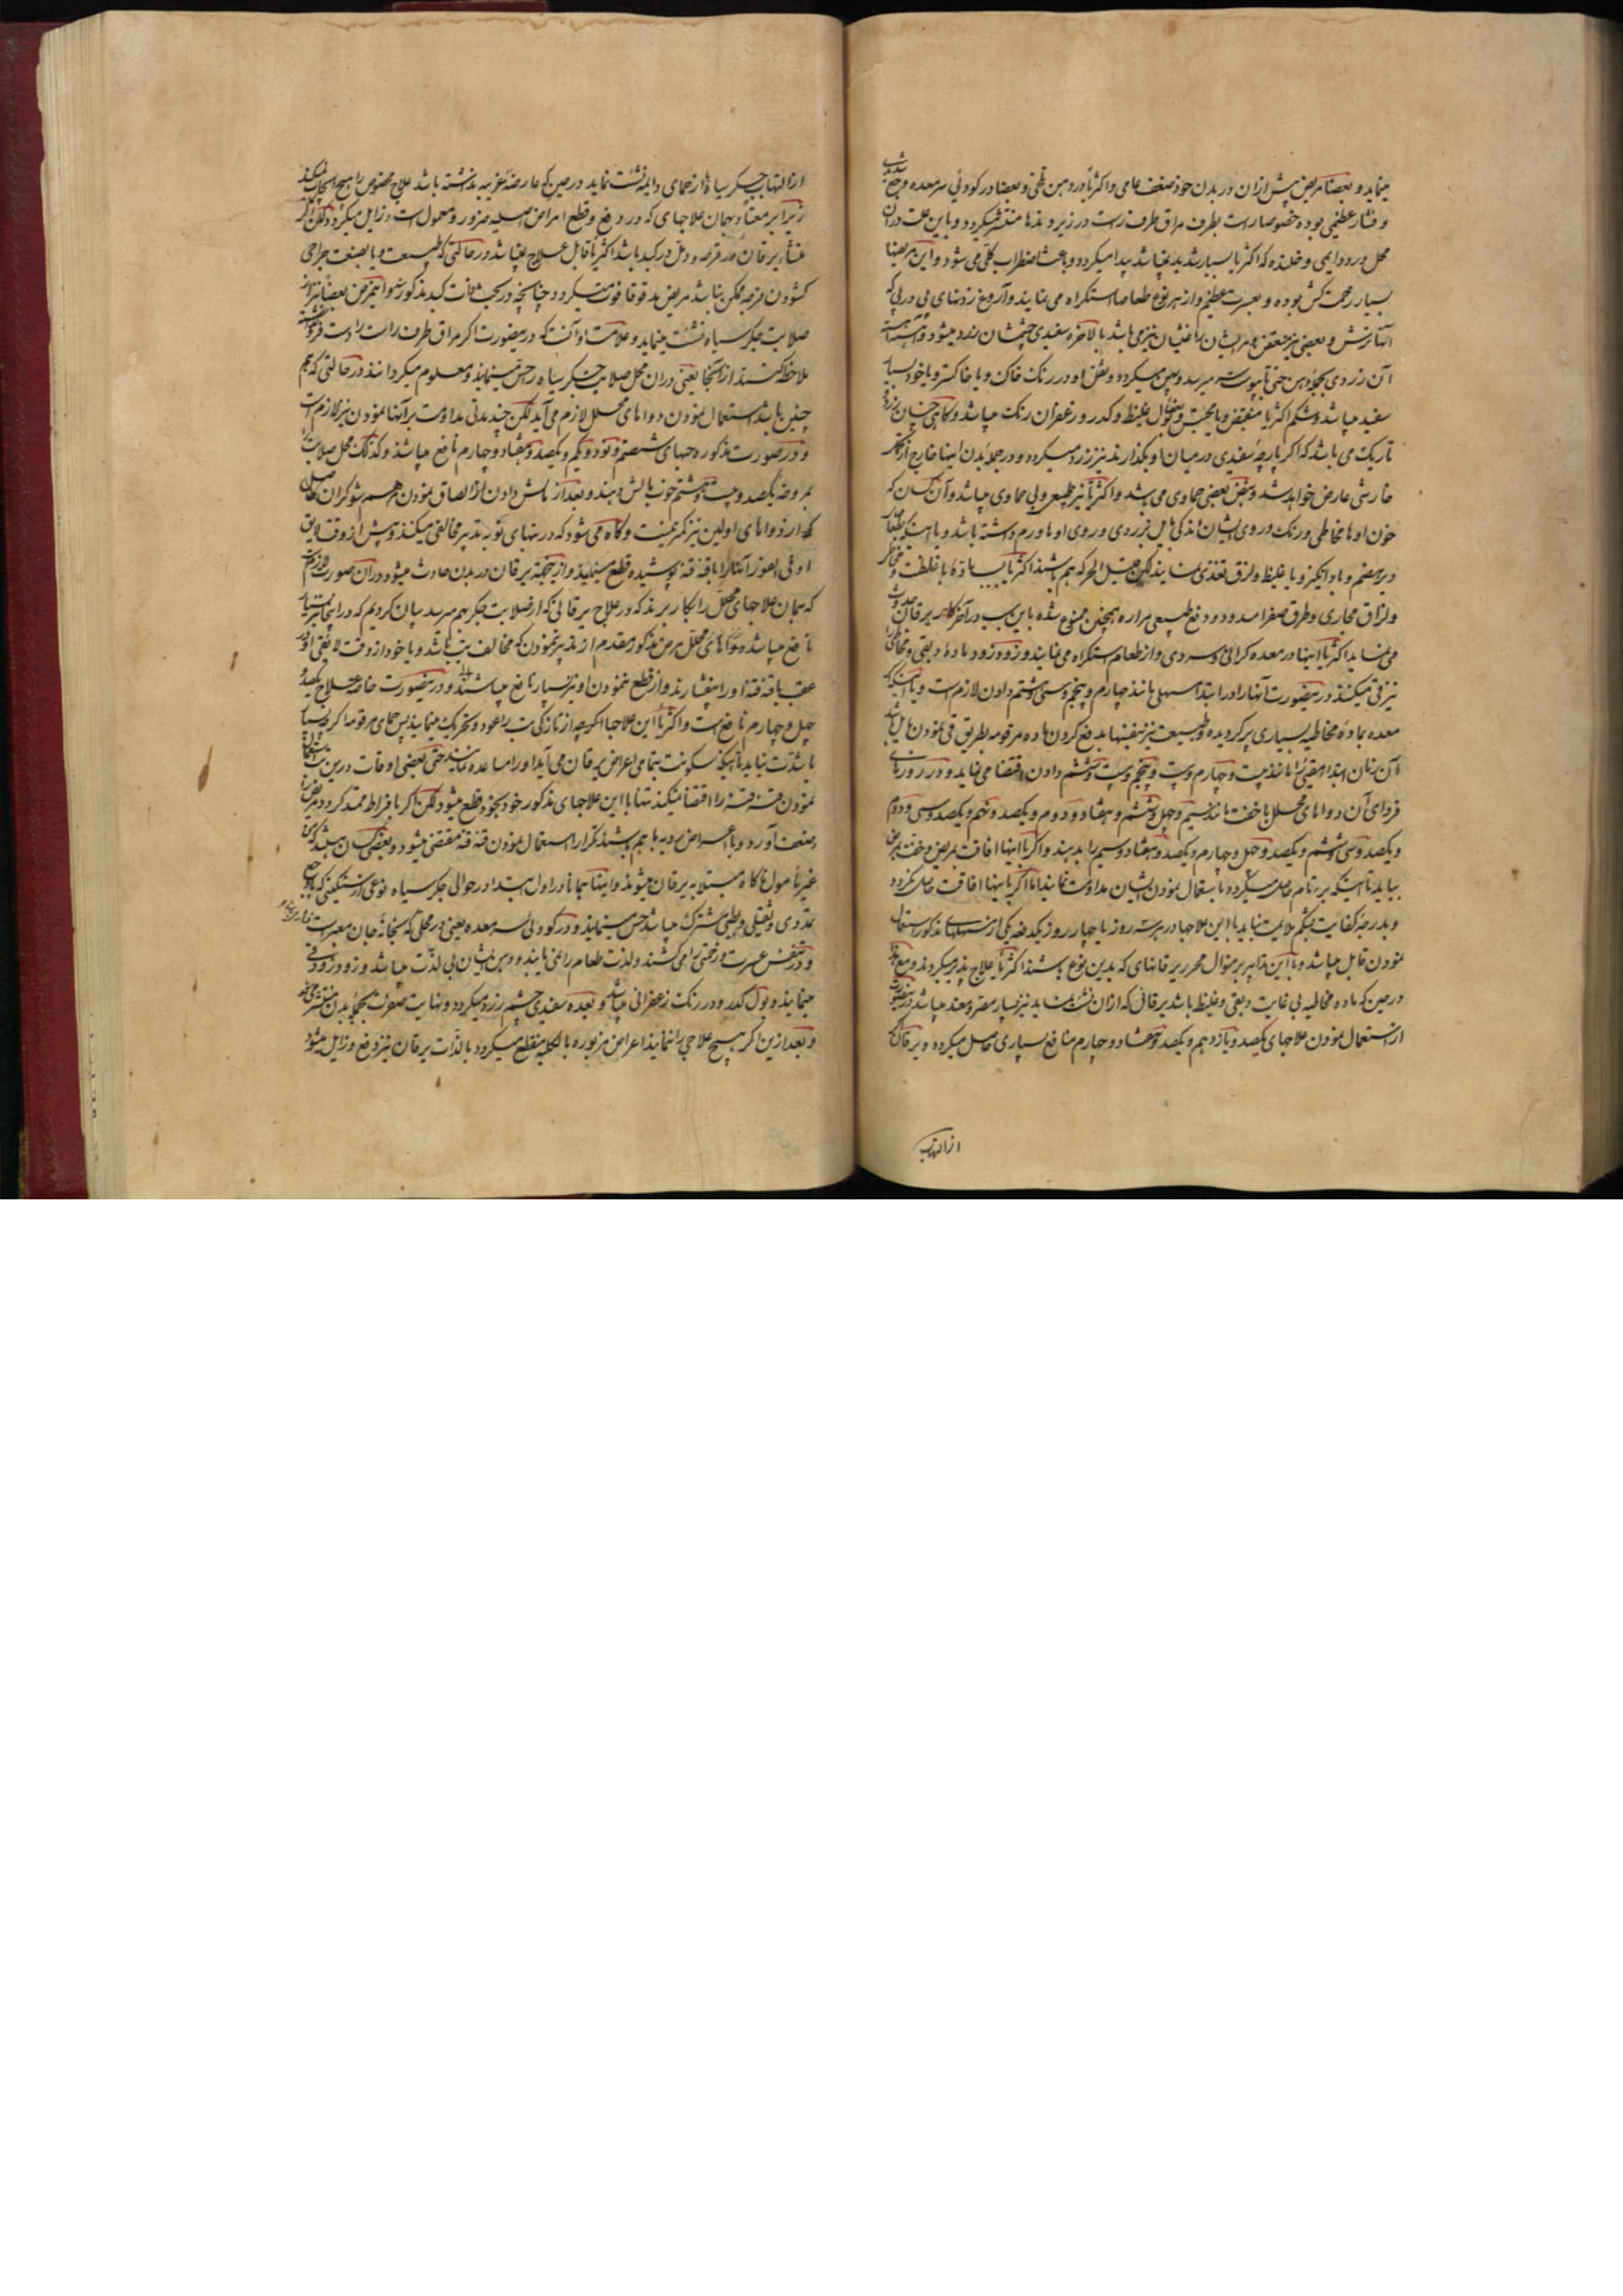 مینماید و بعضا مریض پیش ازان در بدن خود ضعف عامی و اکثریا در دهن تلخی و بعضا در کودئی سر معده وجع شدیدی
و فشار عظیمی بوده خصوصا راست بطرف مراق طرف راست در زیر دندها منتشر میگردد و باین علت دران
محل درد دایمی و خلنده که اکثریا بسیار شدید نمیباشد پیدا میگردد و باعث اضطراب کلی می شود و این مریضها
بسیار زحمت کش بوده و بعسرت عظیم و از هر نوع طعامها استکراه می نمایند و آروغ زدنهای پی در پی که
آنها ترش و بعضی نیز متعفن همراه ایشان یا غثیان نیز می باشد بالاخره سفیدی چشمشان زرد میشود و آهسته آهسته
آن زردی بجمله دهن حتی تا بپوست میرسد و پهن میگردد و ثفل او در رنک خاک و یا خاکستر و یا خود بسیار
سفید میباشد و شکم اکثریا منقبض و یا محتبس و بول غلیظ و کدر و زعفران رنک میباشد و گاهی چنان
تاریک می باشد که اگر پارچه سفیدی در میان او بگذارند نیز زرد میگردد و در جمله بدن اینها خارج از
خارشی عارض خواهد شد و نبض بعضی حماوی می شد و اکثریا نیز طبیعی و بی حماوی میباشد و آن کسان که
خون اوها مخاطی و رنک و روی ایشان اندکی مایل بزردی و روی اوها ورم داشته باشد و یا اینکه بطعام
دیر هضم و باد انگیز و یا غلیظ و لزق تغذی نمایند لیکن قبیل الحرکه هم باشند اکثریا بسبب ماده با غلظت و مخاطی
و لزاق مجاری و طرق صفرا مسدود و دفع طبیعی مراره همچنین ممنوع شده باین سبب در آخر کار یرقان حدوث
می نماید اکثریا اینها در معده گرانی و سردی و از طعام استکراه می نمایند و زود زود ماده دبقی و مخاطی را
نیز قی میکنند در ینصورت آنها را در ابتدا مسهلی مانند چهارم و پنجم و سی و هشتم دادن لازم است و یا اینکه
معده بماده مخاطیه بسیاری پر گردیده و طبیعت نیز بنفسها بدفع کردن ماده مرقومه بطریق قی نمودن مایل باشد
آن زمان ابتدا مقیئی را مانند بیست و چهارم و بیست و پنجم و بیست و ششم دادن اقتضا می نماید و در روزهای
فردای آن دواهای محلل با خفت مانند سیم و چهل و ششم و هشتاد و دوم و یکصد و نهم و یکصد و سی و دوم
و یکصد و سی و ششم و یکصد و چهل و چهارم و یکصد و هشتاد و سیم را بدهند و اگر با اینها افاقت بمریض و خفت بمرض
بیاید تا اینکه برء تام حاصل میگردد باستعمال نمودن ایشان مداومت نمایند اما اگر با اینها افاقت حاصل نگردد
و بدرجه کفایت بشکم ملایمت نیاید با این علاجها در هر سه روز یا چهار روز یکدفعه یکی از مسهلهای مذکور استعمال
نمودن قابل میباشد و با این تدابیر بر منوال محرر یرقانهای که بدین نوع باشند اکثریا علاج پذیر میگردند و مع هذا
در حین که ماده مخاطیه بی غایت دبقی و غلیظ باشد یرقانی که ازان نشئت نماید نیز بسیار مصر و معند میباشد در ینصورت
از استعمال نمودن علاجهای یکصد و یازدهم و یکصد و هشتاد و چهارم منافع بسیاری حاصل میگردد و یرقان که
از التهاب
از التهاب جگر سیاه و از حمای دایمه نشئت نماید در حین که عارضه غریبه نداشته باشد علاج مخصوص را هیچ ایجاب نمیکند
زیرا بر معتاد بهمان علاجهای که در دفع و قطع امراض اصلیه ضرور و معمول است زایل میگردد و لکن اگر
منشاء یرقان قرحه و دمل در کبد باشد اکثریا قابل علاج نمیباشد در حالتی که طبیعت و یا بصنعت جراحی
کشودن قرحه ممکن نباشد مریض مدقوقا فوت میگردد چنانچه در بحث آفات کبد مذکور شد و این مرض بعضا نیز از
صلابت جگر سیاه نشئت مینماید و علامت او آنست که در ینصورت اگر مراق طرف راست را دست فرو
ملاحظه کنند از آنجا یعنی دران محل صلابت جگر سیاه را حس مینماید و معلوم میگردانند در حالتی که هم
چنین باشد استعمال نمودن دواهای محلل لازم می آید لکن چند مدتی مداومت بر آنها نمودن نیز لازم است
و در صورت مذکوره حبهای شصتم و نود و یکم و یکصد و هفتاد و چهارم نافع میباشد و کذلک محل صلابت را
بمروخه یکصد و بیست و هشتم خوب مالش دهند و بعد از مالش دادن الصاق نمودن مرهم شوکران
که از دواهای اولین نیز کمتر نیست و گاه می شود که در تبهای نوبه بتدبیر مخالفی میکنند و پیش از وقت لایق
او فی الفور آنها را بافته قطع مینمایند و از ینجهته یرقان در بدن حادث میشود دران صورت لازم است
که همان علاجهای محلل را بکار برند که در علاج یرقانی که از صلابت جگر بهم میرسد بیان کردیم که در اینجا نیز بسیار
نافع میباشد و دواهای محلل مرض مذکور مقدم از تدبیر نمودن که مخالف تب باشد و یا خود از وقت لایقی او در
عقب بافته او را بفشارند و از قطع نمودن او نیز بسیار نافع میباشند و در ینصورت خاصه علاج یکصد و
چهل و چهارم نافع است و اکثریا این علاجها اگرچه از تازگی تب را عود و تحریک مینمایند پس حمای مرقومه اگر بسیار
با شدت نیاید تا اینکه سکونت بتمامی اعراض یرقان می آید او را مساعده نمایند حتی بعضی اوقات درین تب استعمال
نمودن قنه قنه را اقتضا نمیکند تنها با این علاجهای مذکور خود بخود قطع میشود لکن اگر بافراط ممتد گردد مریض را
ضعف آورد و یا اعراض ردیه باهم باشند تکرار استعمال نمودن قنه قنه مقتضی میشود و بعضی کسان هستند که
غیر نامول ناگاه مبتلا به یرقان میشوند و اینها همانا در اول ابتدا در حوالی جگر سیاه نوعی از سنگینی که با وجع
تمددی و ثقلی و بطئی مشترک میباشد حس مینمایند و در کودئی سر معده یعنی در محلی که سنجانه جان معبر است
و در تنفس عسرت و زحمتی را می کشند و لذت طعام را نمی یابند و دهن ایشان بی لذت میباشد و زود زود قی
مینمایند و بول کدر و در رنک زعفرانی میباشد و بعده سفیدی چشم زرد میگردد و نهایت صفرت بجمله بدن منتشر میشود
و بعد ازین اگر هیچ علاجی را ننمایند اعراض مزبوره بالکلیه منقطع میگردد بالذات یرقان نیز دفع و زایل میشود